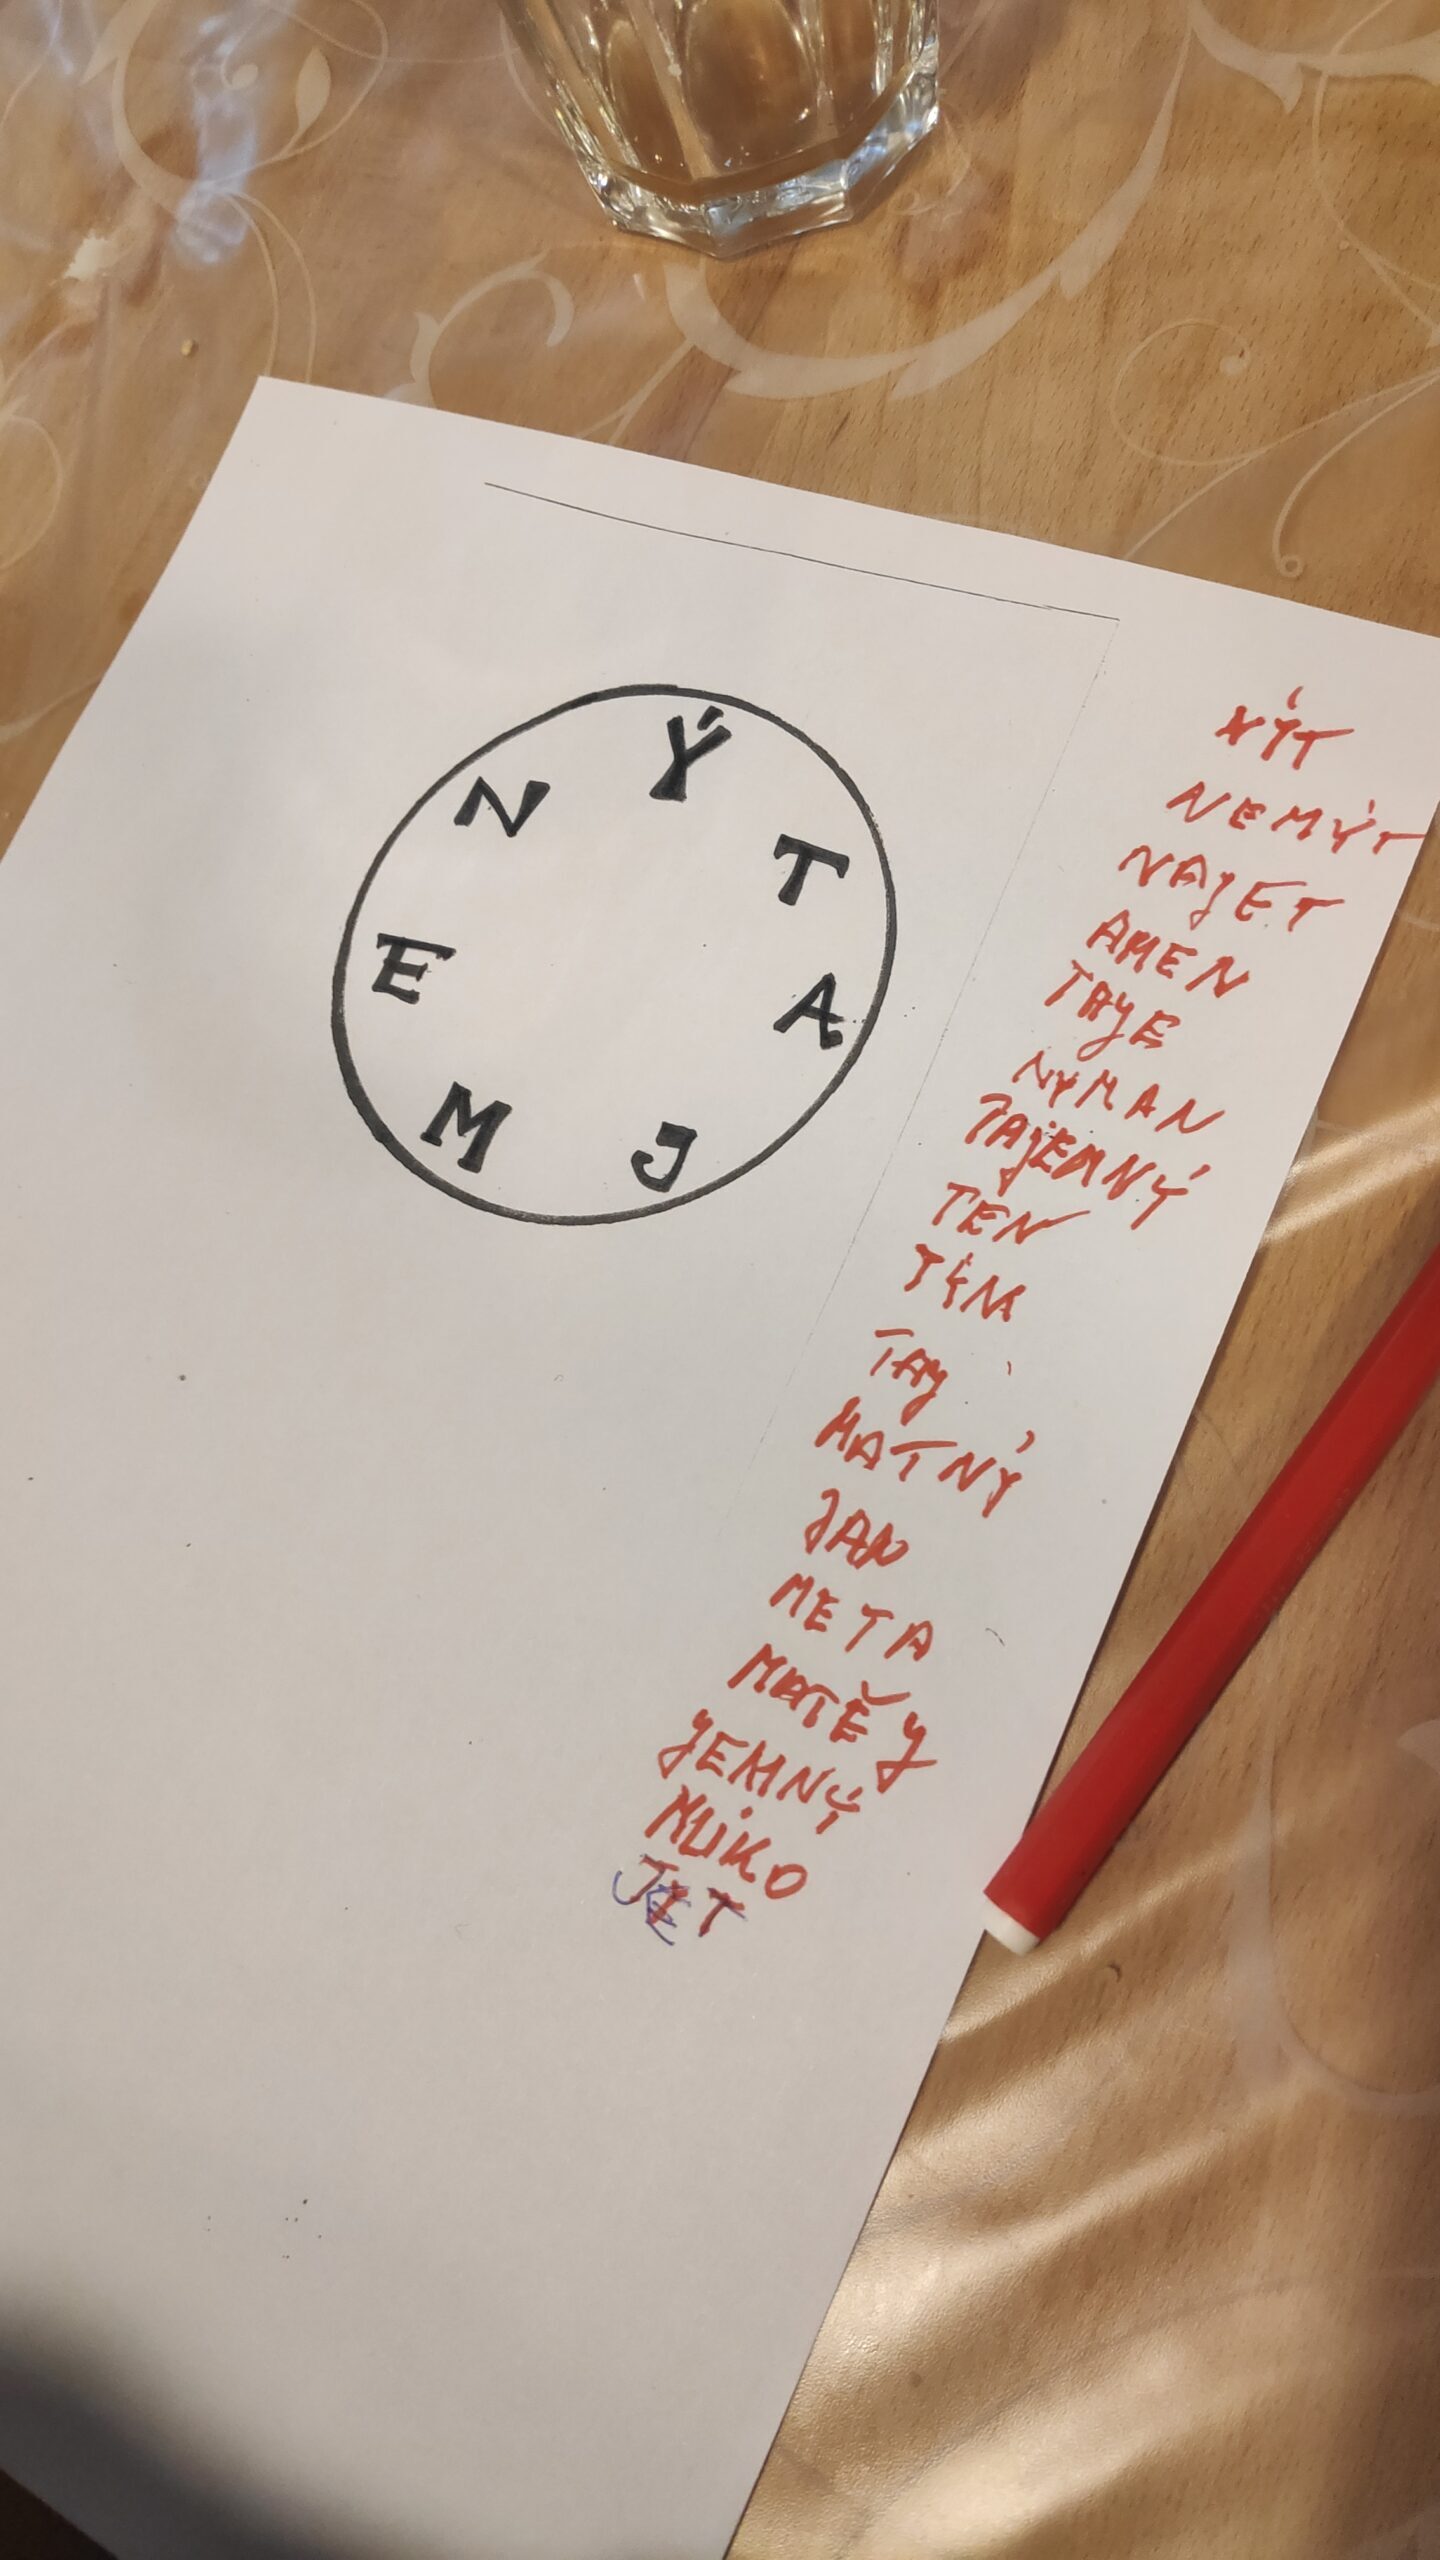 Ý
N
T
E
A
M
J
NÝT
NEMÝT
NAJET
AMEN
TAJE
NYMAN
TAJEMNÝ
TEN
TÝM
TAJ
MATNÝ
JAN
META
MATĚJ
JEMNÝ
MLÍKO
JET